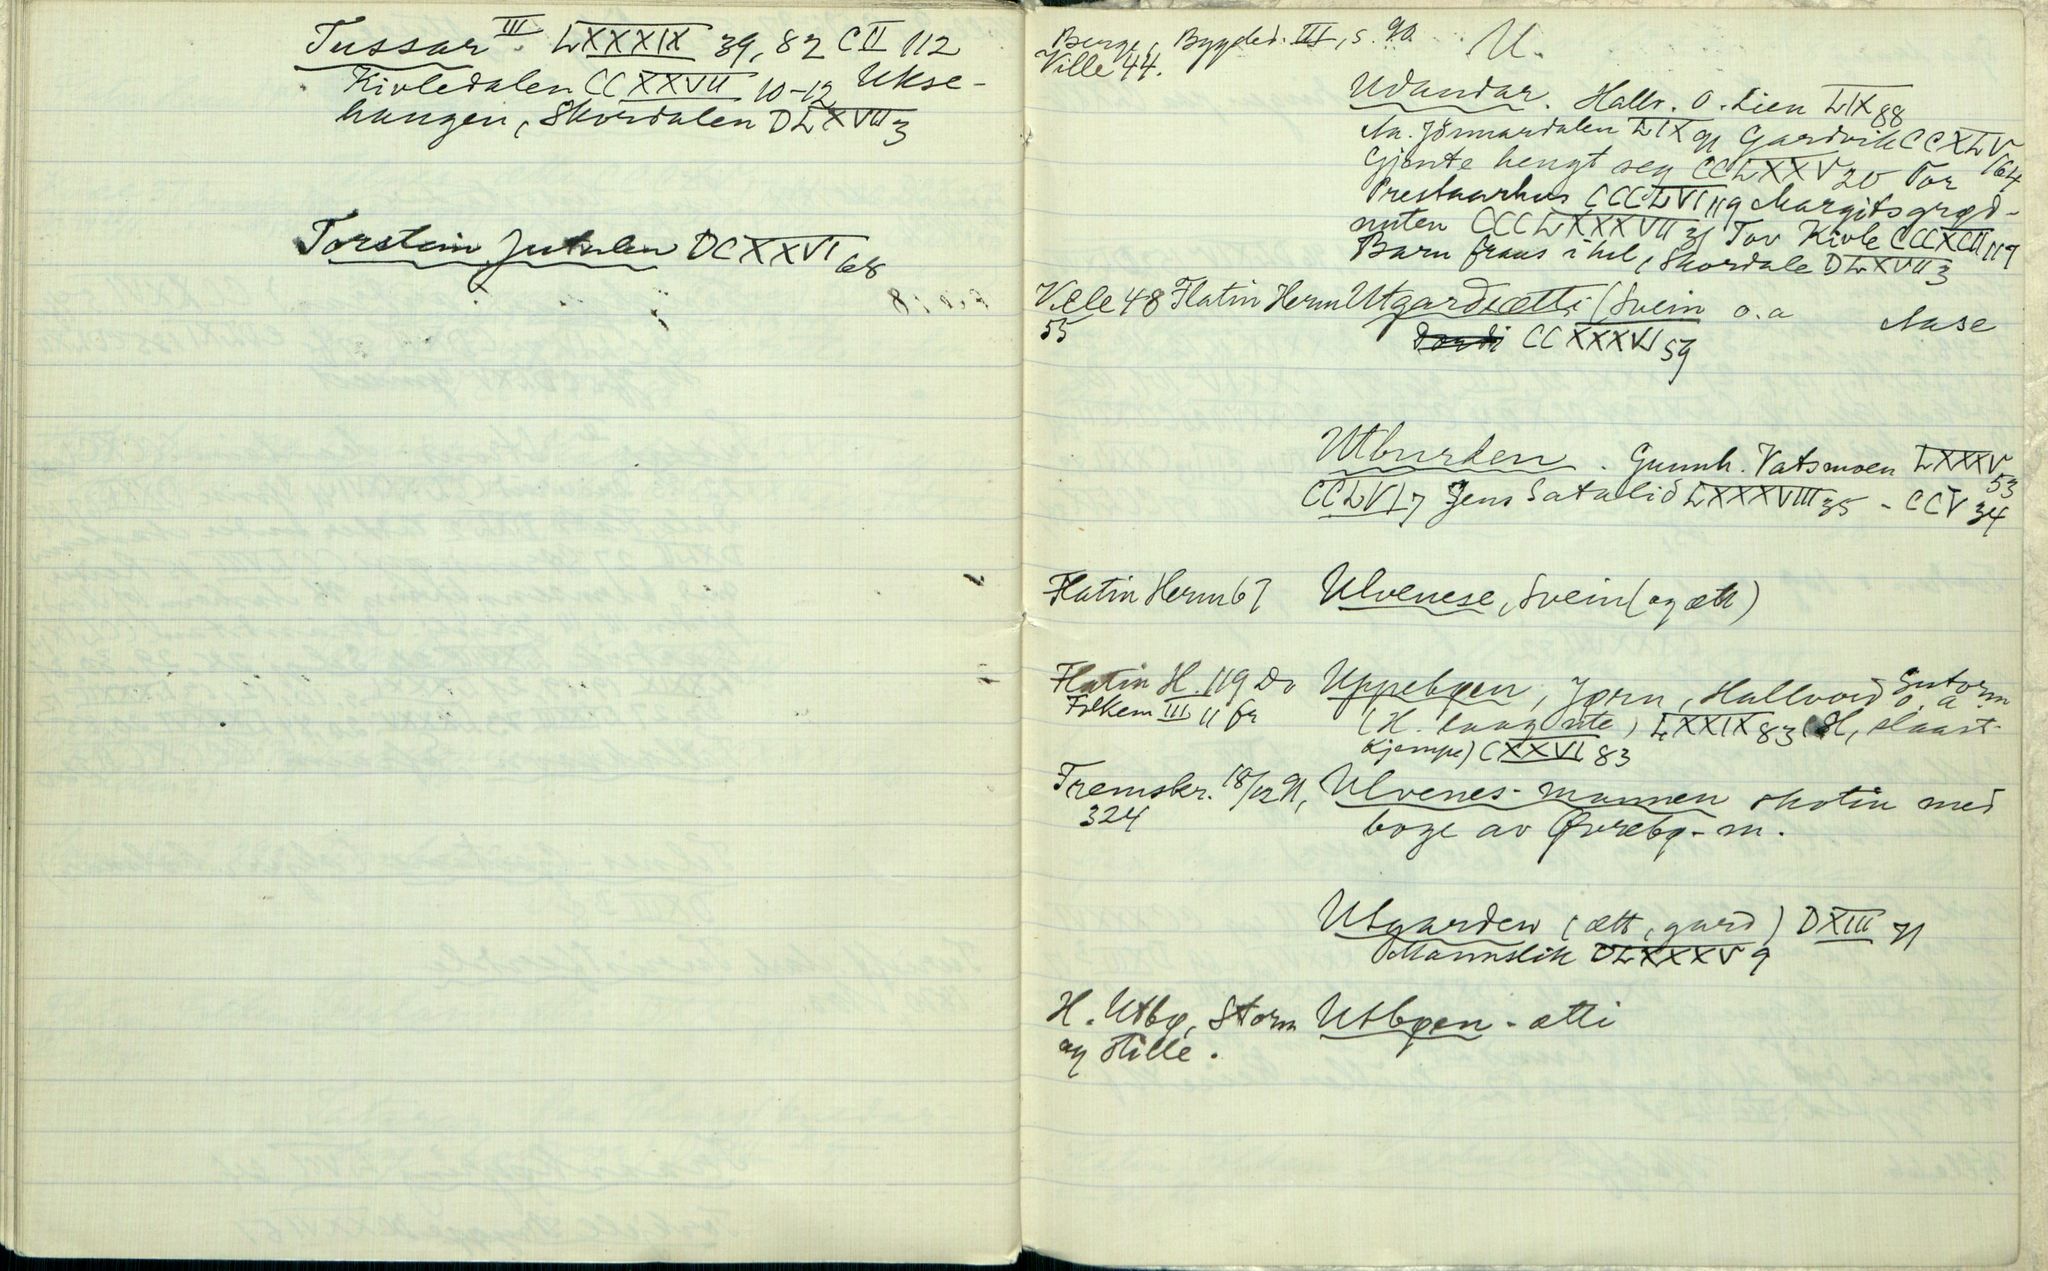 Tussar III. LXXXIX 39, 82 CII 112
Kivledalen CCXXVII 10-12 Ukse-
haugen, Skordalen DLXVII 3
Torstein Jutulen DCXXVI 68
Berge, Bygded. III, s. 90.
Ville 44.
U.
Udandar. Hallv. O. Lien LIX 88
Aa. Jönmardalen LIX 91 Gardvik CCXLV 164
Gjente hengt seg CCLXXV 20 Tor
Prestaarhus CCCLVI 119 Margitsgrød-
nuten CCCLXXXVII 31 Tov Kivle CCCXCII 119
Barn fraus i hel, Skordale DLXVII 3
Ville 48 Flatin Herm Utgardsætti (Svein o.a Aase
55 CCXXXVI 59
Utburden. Gunnh. Vatsmoen LXXXV 53
CCLVI 7 Jens Sataslid LXXXVIII 35 - CCV 34
Flatin Herm 67 Ulvenese, Svein (og ætt)
Flatin H. 119 Do Uppebøen, Jørn, Hallvord Gutorm o. a
Folkem III 11 fr (H. laag ute) LXXIX 83 (H, slaast-
kjempe) CXXVI 83
Fremskr. 18/12 91, Ulvenes-mannen skotin med
324 boge av Øvrebø-m.
Utgarden (ætt, gard) DXIII 71
Mannslik DLXXXV 9
H. Utbø, Storm Utbøen-ætti
og Stille.